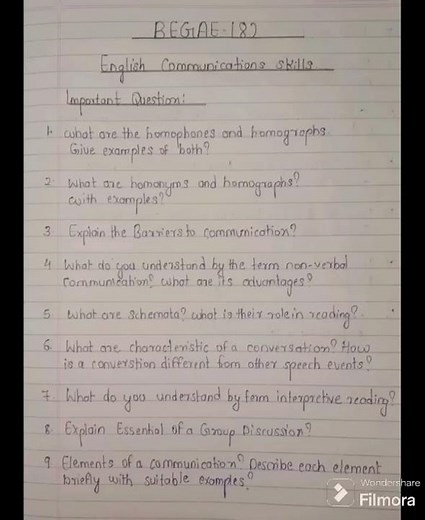 BEGAE-182
English Communications skills
Important Question:
1. What are the homophones and homographs
Give examples of both?
2. What are homonyms and homographs?
with examples?
3. Explain the Barriers to communication?
4 What do you understand by the term non-verbal
Communication? what are its advantages?
5 What are Schemata? what is their role in reading?
6. What are characteristic of a conversation? How
is a converstion different from other speech events?
7. What do you understand by ferm interpretive reading?
8. Explain Essential of a Group Discussion?
9. Elements of a communication? Describe each element
briefly with suitable examples?
Wondershare
Filmora